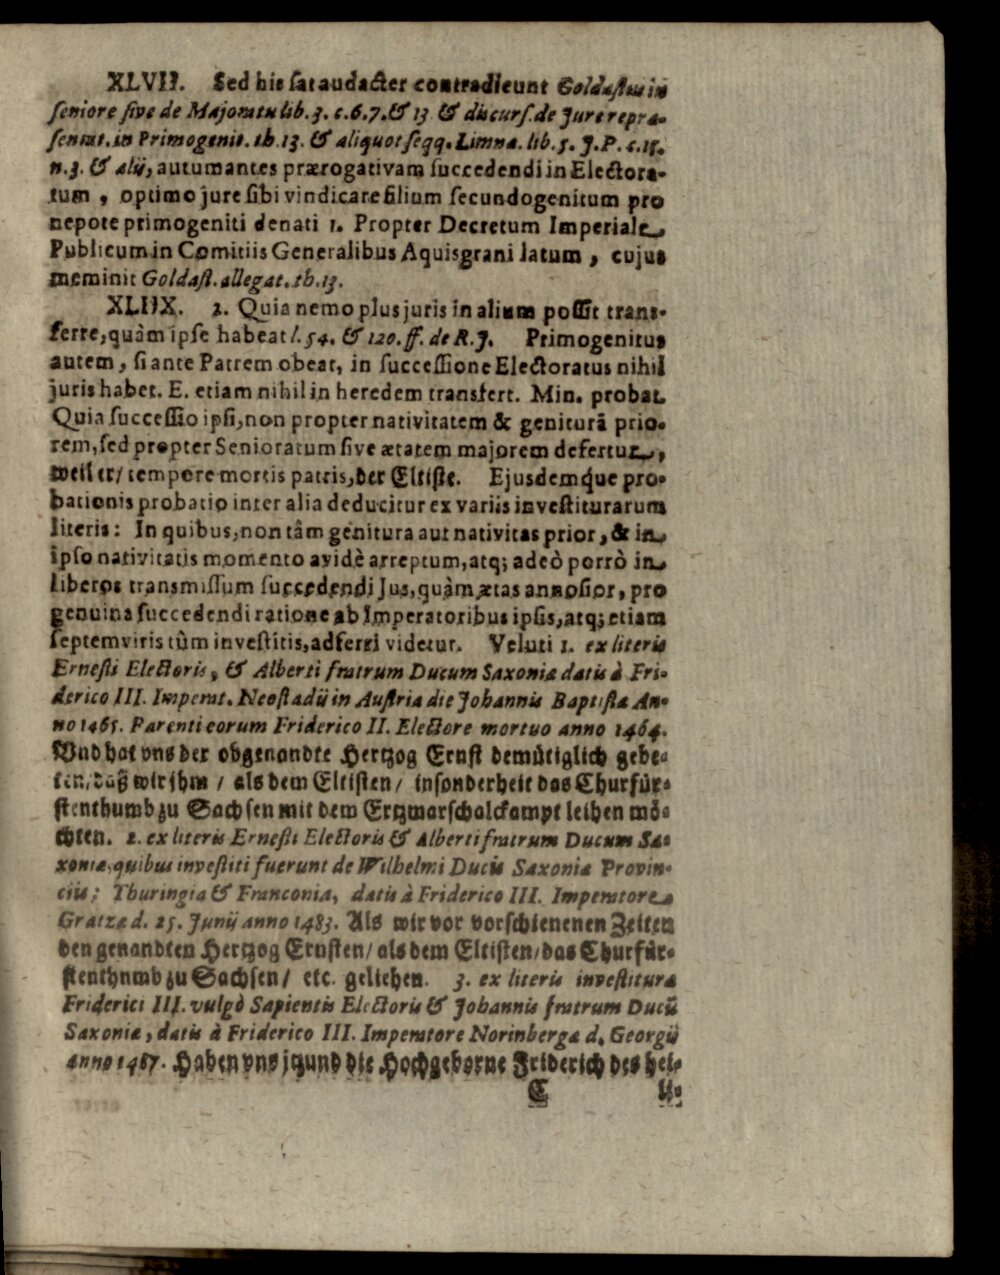 XLVII. Sed his sat audacter contradicunt Goldastus in
seniore sive de Majoratu lib. 3. c. 6. 7. & 13 & discurs. de Jure repræ-
sentat. in Primogenit. th. 13. & aliquot seqq. Limnæ. lib. 5. J. P. c. 15.
n. 3. & alii, autumantes prærogativam succedendi in Electora-
tum, optimo jure sibi vindicare filium secundogenitum pro
nepote primogeniti denati 1. Propter Decretum Imperiale
Publicum in Comitiis Generalibus Aquisgrani latum, cujus
meminit Goldast. allegat. th. 13.
XLIIX. 2. Quia nemo plus juris in alium possit trans-
ferre, quàm ipse habeat l. 54. & 120. ff. de R. J. Primogenitus
autem, si ante Patrem obeat, in successione Electoratus nihil
juris habet. E. etiam nihil in heredem transfert. Min. probat.
Quia successio ipsi, non propter nativitatem & geniturã prio-
rem, sed propter Senioratum sive ætatem majorem defertur,
weil er/ tempore mortis patris, der Eltiste. Ejusdemque pro-
bationis probatio inter alia deducitur ex variis investiturarum
literis: In quibus, non tâm genitura aut nativitas prior, & in
ipso nativitatis momento avidè arreptum, atq; adeò porrò in
liberos transmissum succedendi Jus, quàm ætas annosior, pro
genuina succedendi ratione ab Imperatoribus ipsis, atq; etiam
septemviris tùm investitis, adferri videtur. Veluti 1. ex literis
Ernesti Electoris, & Alberti fratrum Ducum Saxoniæ datis à Fri-
derico III. Imperat. Neostadii in Austria die Johannis Baptistæ An-
no 1465. Parenti eorum Friderico II. Electore mortuo anno 1464.
Und hat uns der obgenandte Hertzog Ernst demütiglich gebe-
ten, daß wir ihm / als dem Eltisten / insonderheit das Churfür-
stenthumb zu Sachsen mit dem Ertzmarschalckampt leihen mö-
chten. 2. ex literis Ernesti Electoris & Alberti fratrum Ducum Sa-
xoniæ, quibus investiti fuerunt de Wilhelmi Ducis Saxoniæ Provin-
ciis: Thuringia & Franconia, datis à Friderico III. Imperatore
Gratzæ d. 25. Junii anno 1483. Als wir vor vorschienenen Zeiten
den genandten Hertzog Ernsten / als dem Eltisten / das Churfür-
stenthumb zu Sachsen / etc. geliehen. 3. ex literis investituræ
Friderici III. vulgò Sapientis Electoris & Johannis fratrum Ducũ
Saxoniæ, datis à Friderico III. Imperatore Norinbergæ d. Georgii
anno 1487. Haben uns jtzund die Hochgeborne Friderich des hei-
C li-